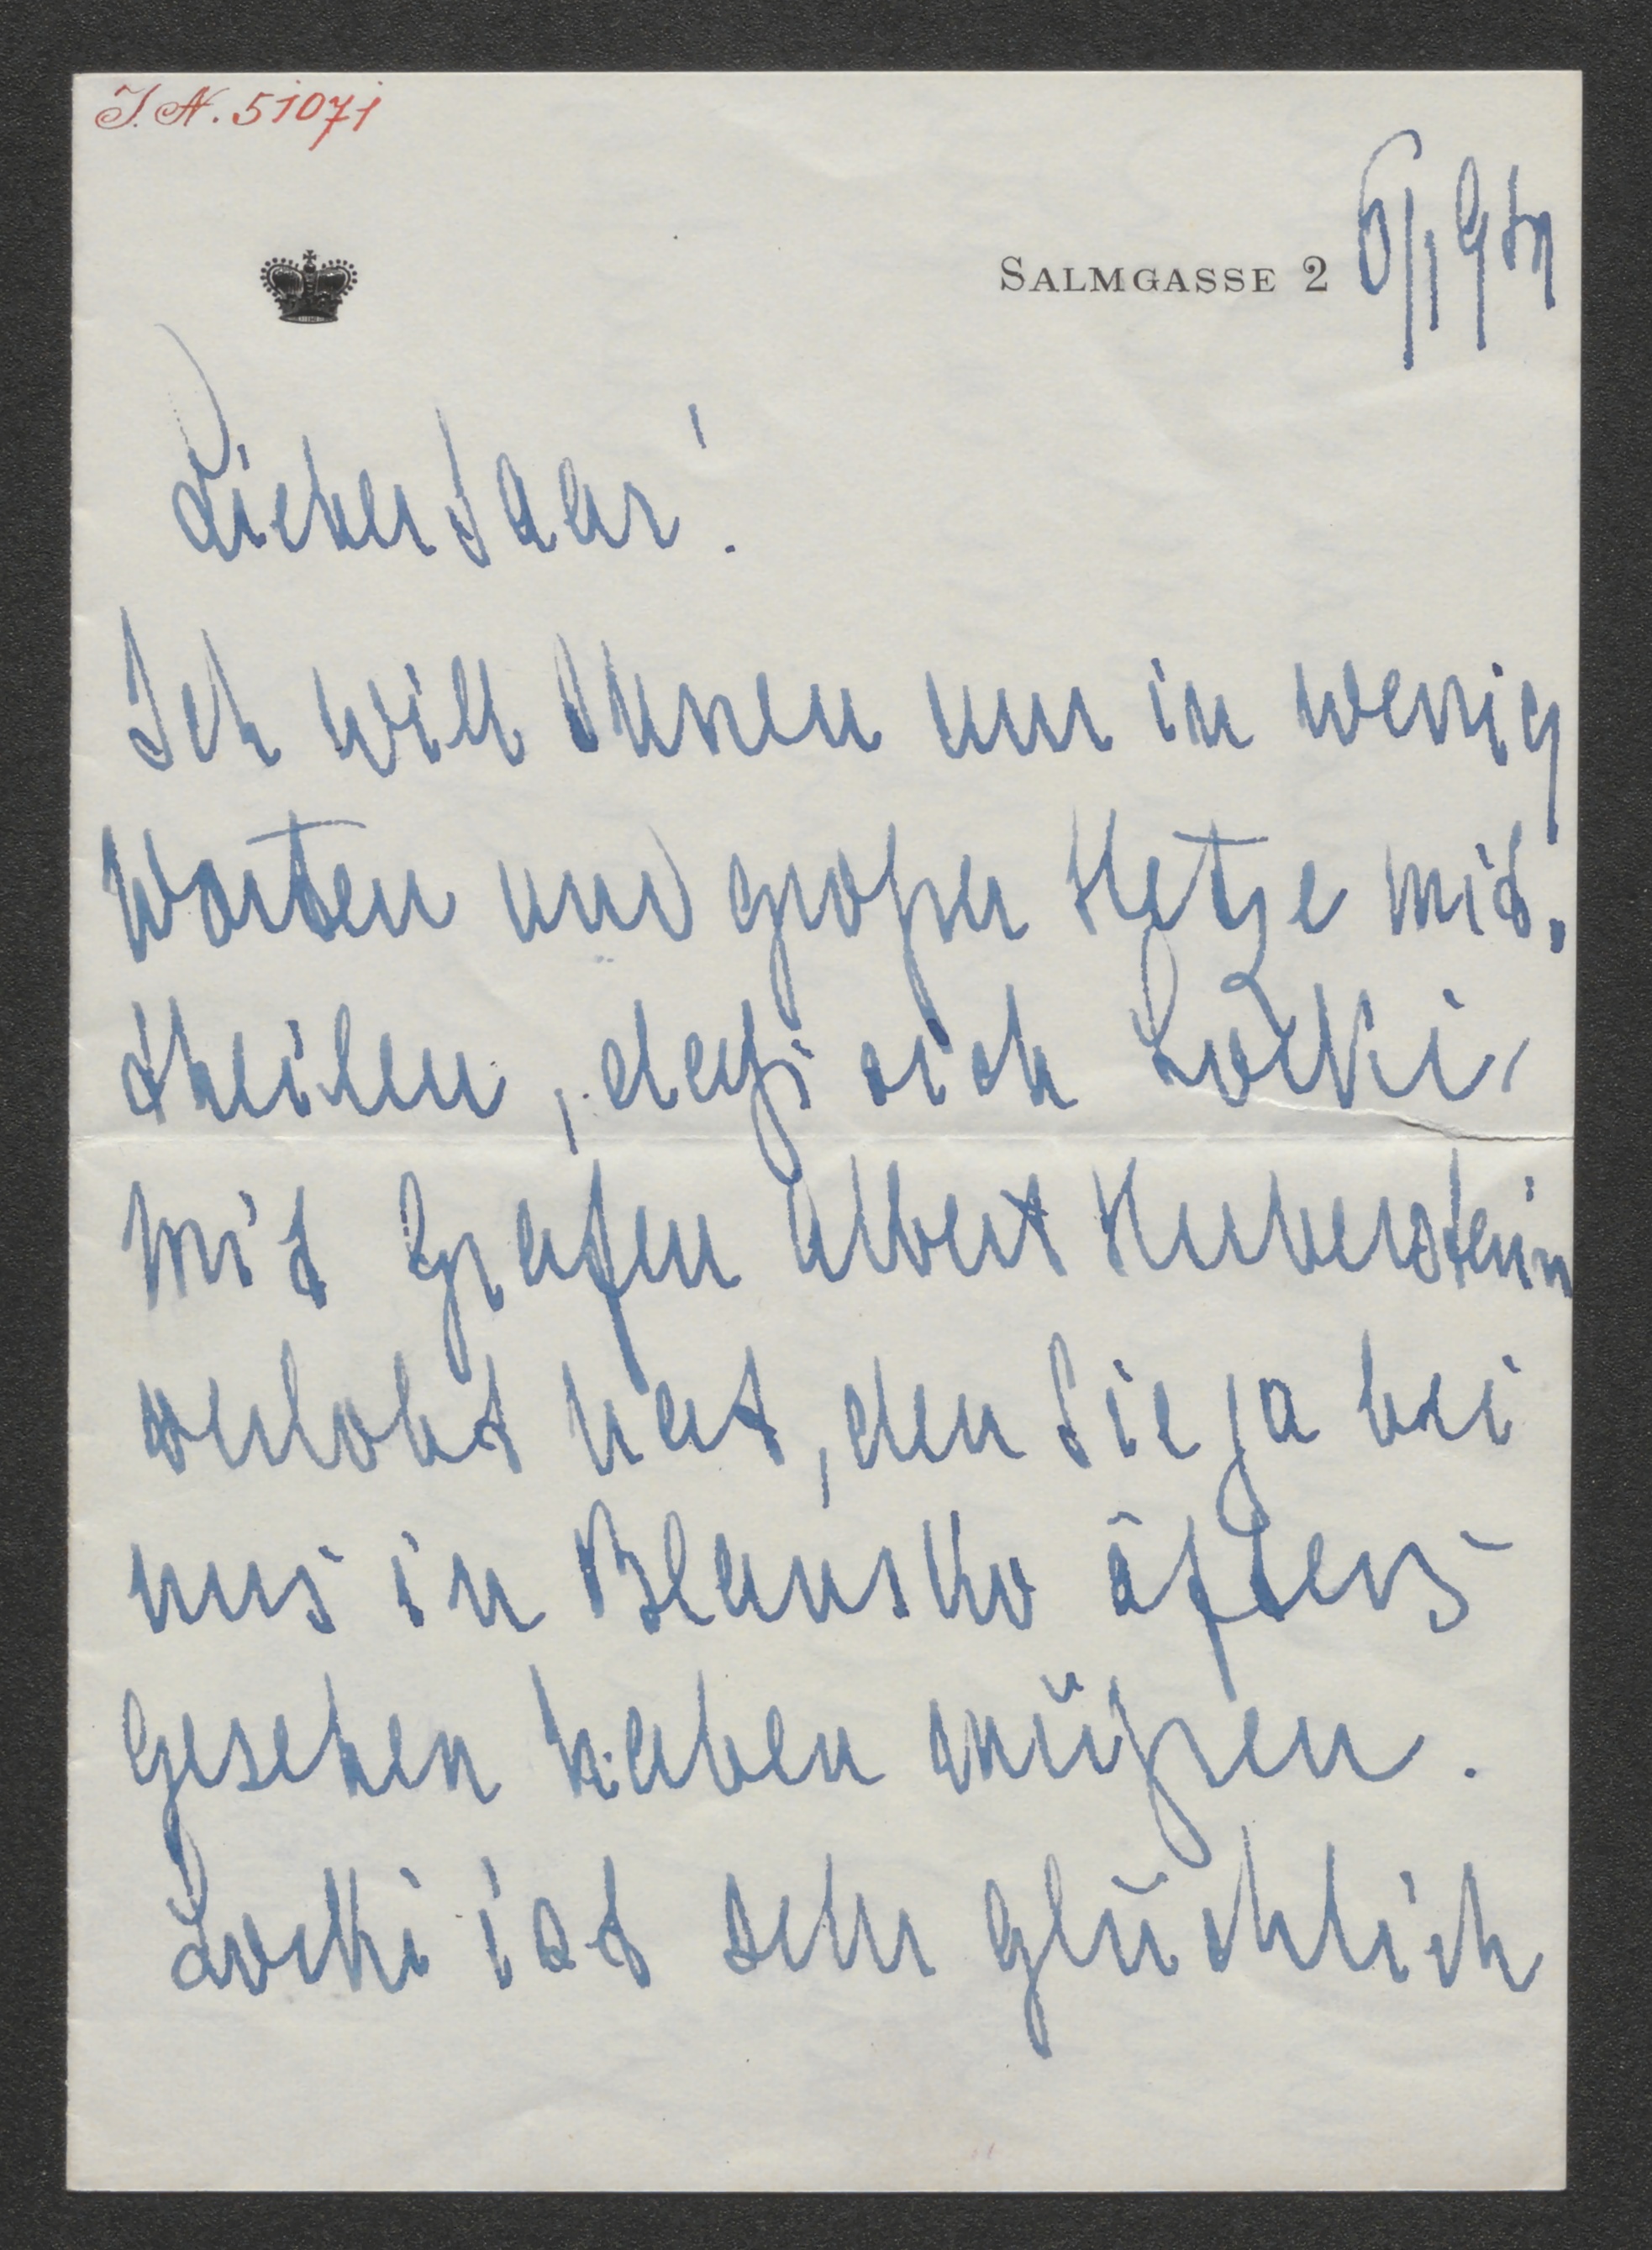 I.N. 51071
SALMGASSE 2
6/1 9
Lieber Saar!
Ich will Ihnen nur in wenig
Worten und großer Hetze mit-
theilen, daß sich
mit Grafen Albert
verlobt hat, den Sie ja bei
uns in Blansko öfters
gesehen haben müßen.
ist sehr glücklich